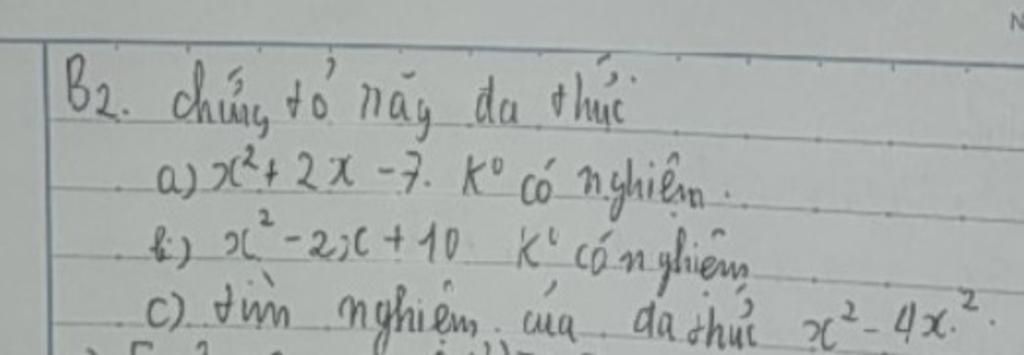 B2. chứng tỏ rằng đa thức
a) x² + 2x - 7. K⁰ có nghiệm.
b) x² - 2x + 10 K⁰ có nghiệm
c) tìm nghiệm của đa thức x² - 4x.².